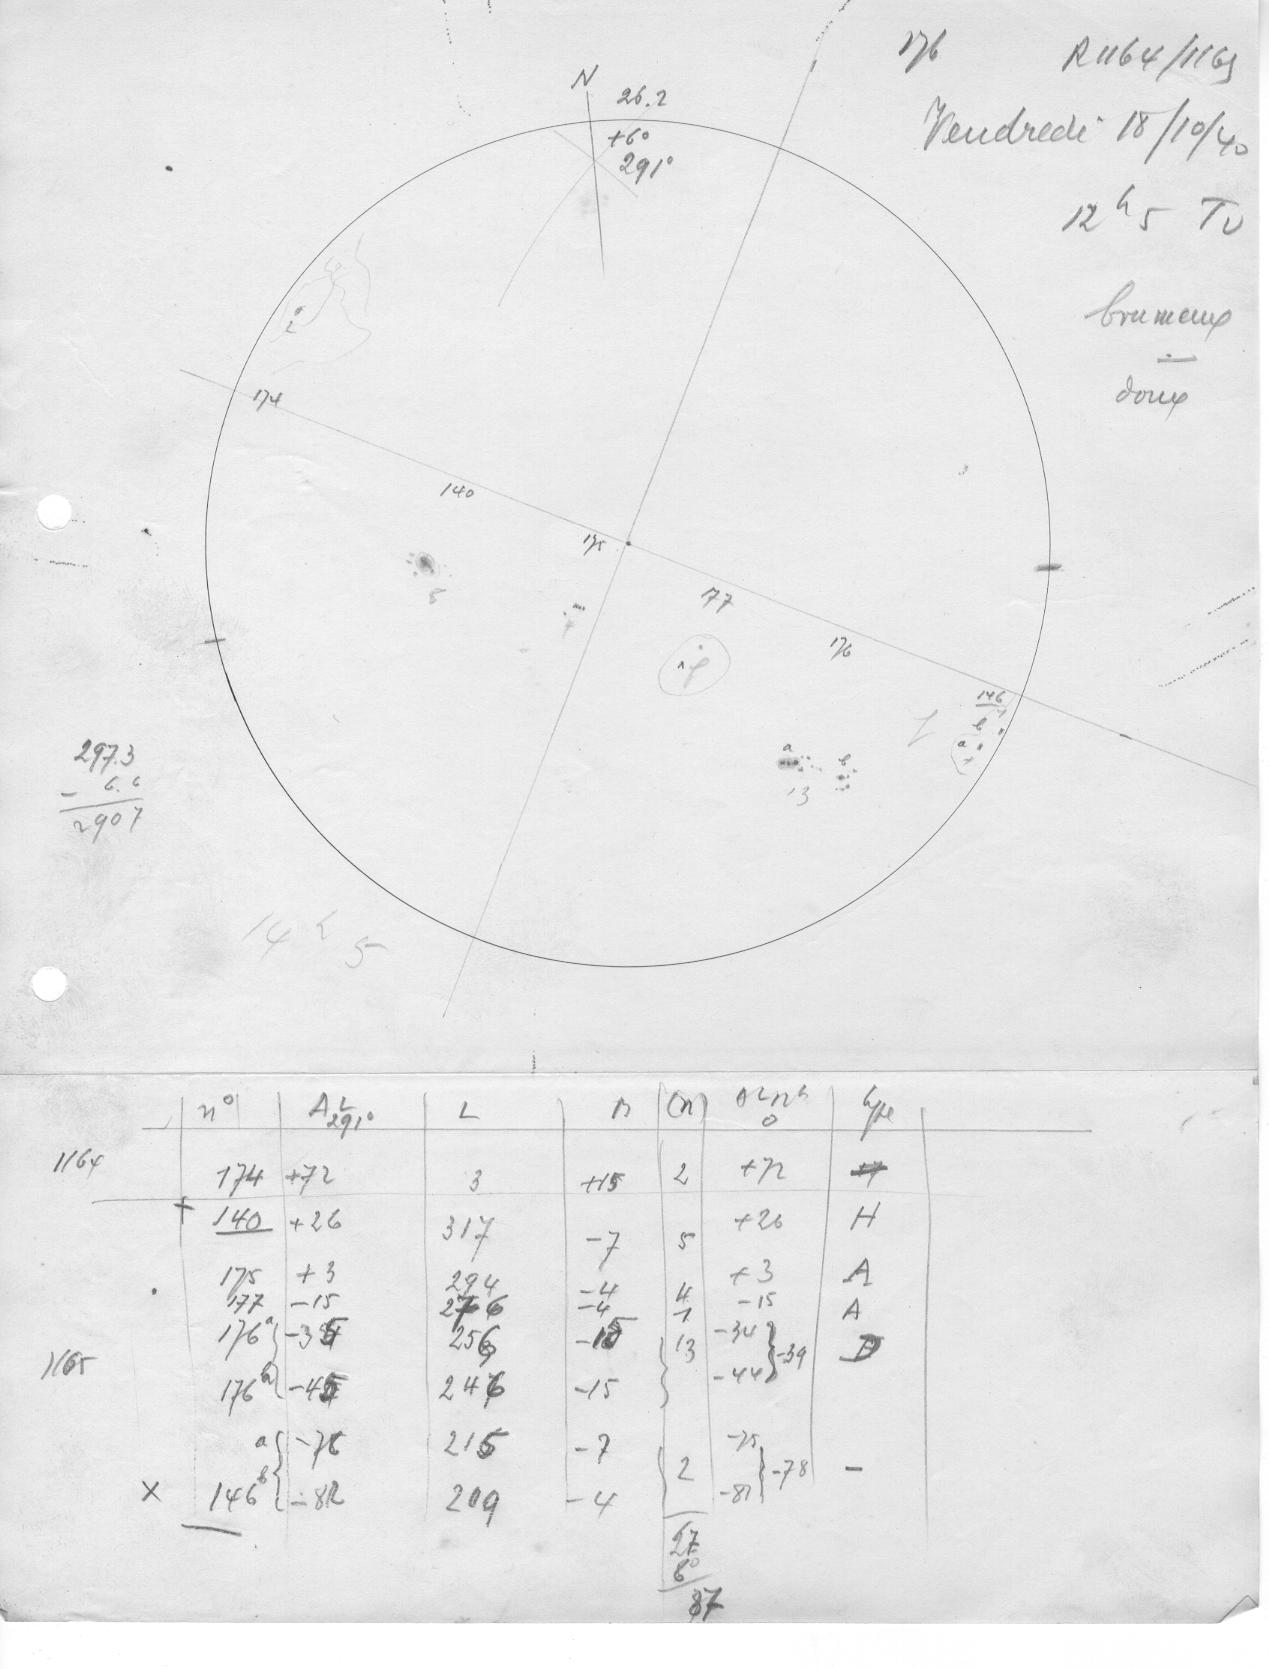 176 R1164/1165
Vendredi 18/10/40
12h5 TU
brumeux
doux
N
26.2
+6°
291°
2
174
140
175
3
8
4
77
176
146
b
a
a
b
13
297.3
- 6.6
2907
14h5
n° 291° L B (n) 0 type
1164 174 +72 3 +15 2 +72
140 +26 317 -7 5 +26 H
175 +3 294 -4 4 +3 A
177 -15 276 -4 1 -15 A
176a -35 256 -15 13 -34 -39 D
1165
176b -45 246 -15 -44
a -76 215 -7 -75
x 146b -82 209 -4 2 -81 -78 -
27
60
87